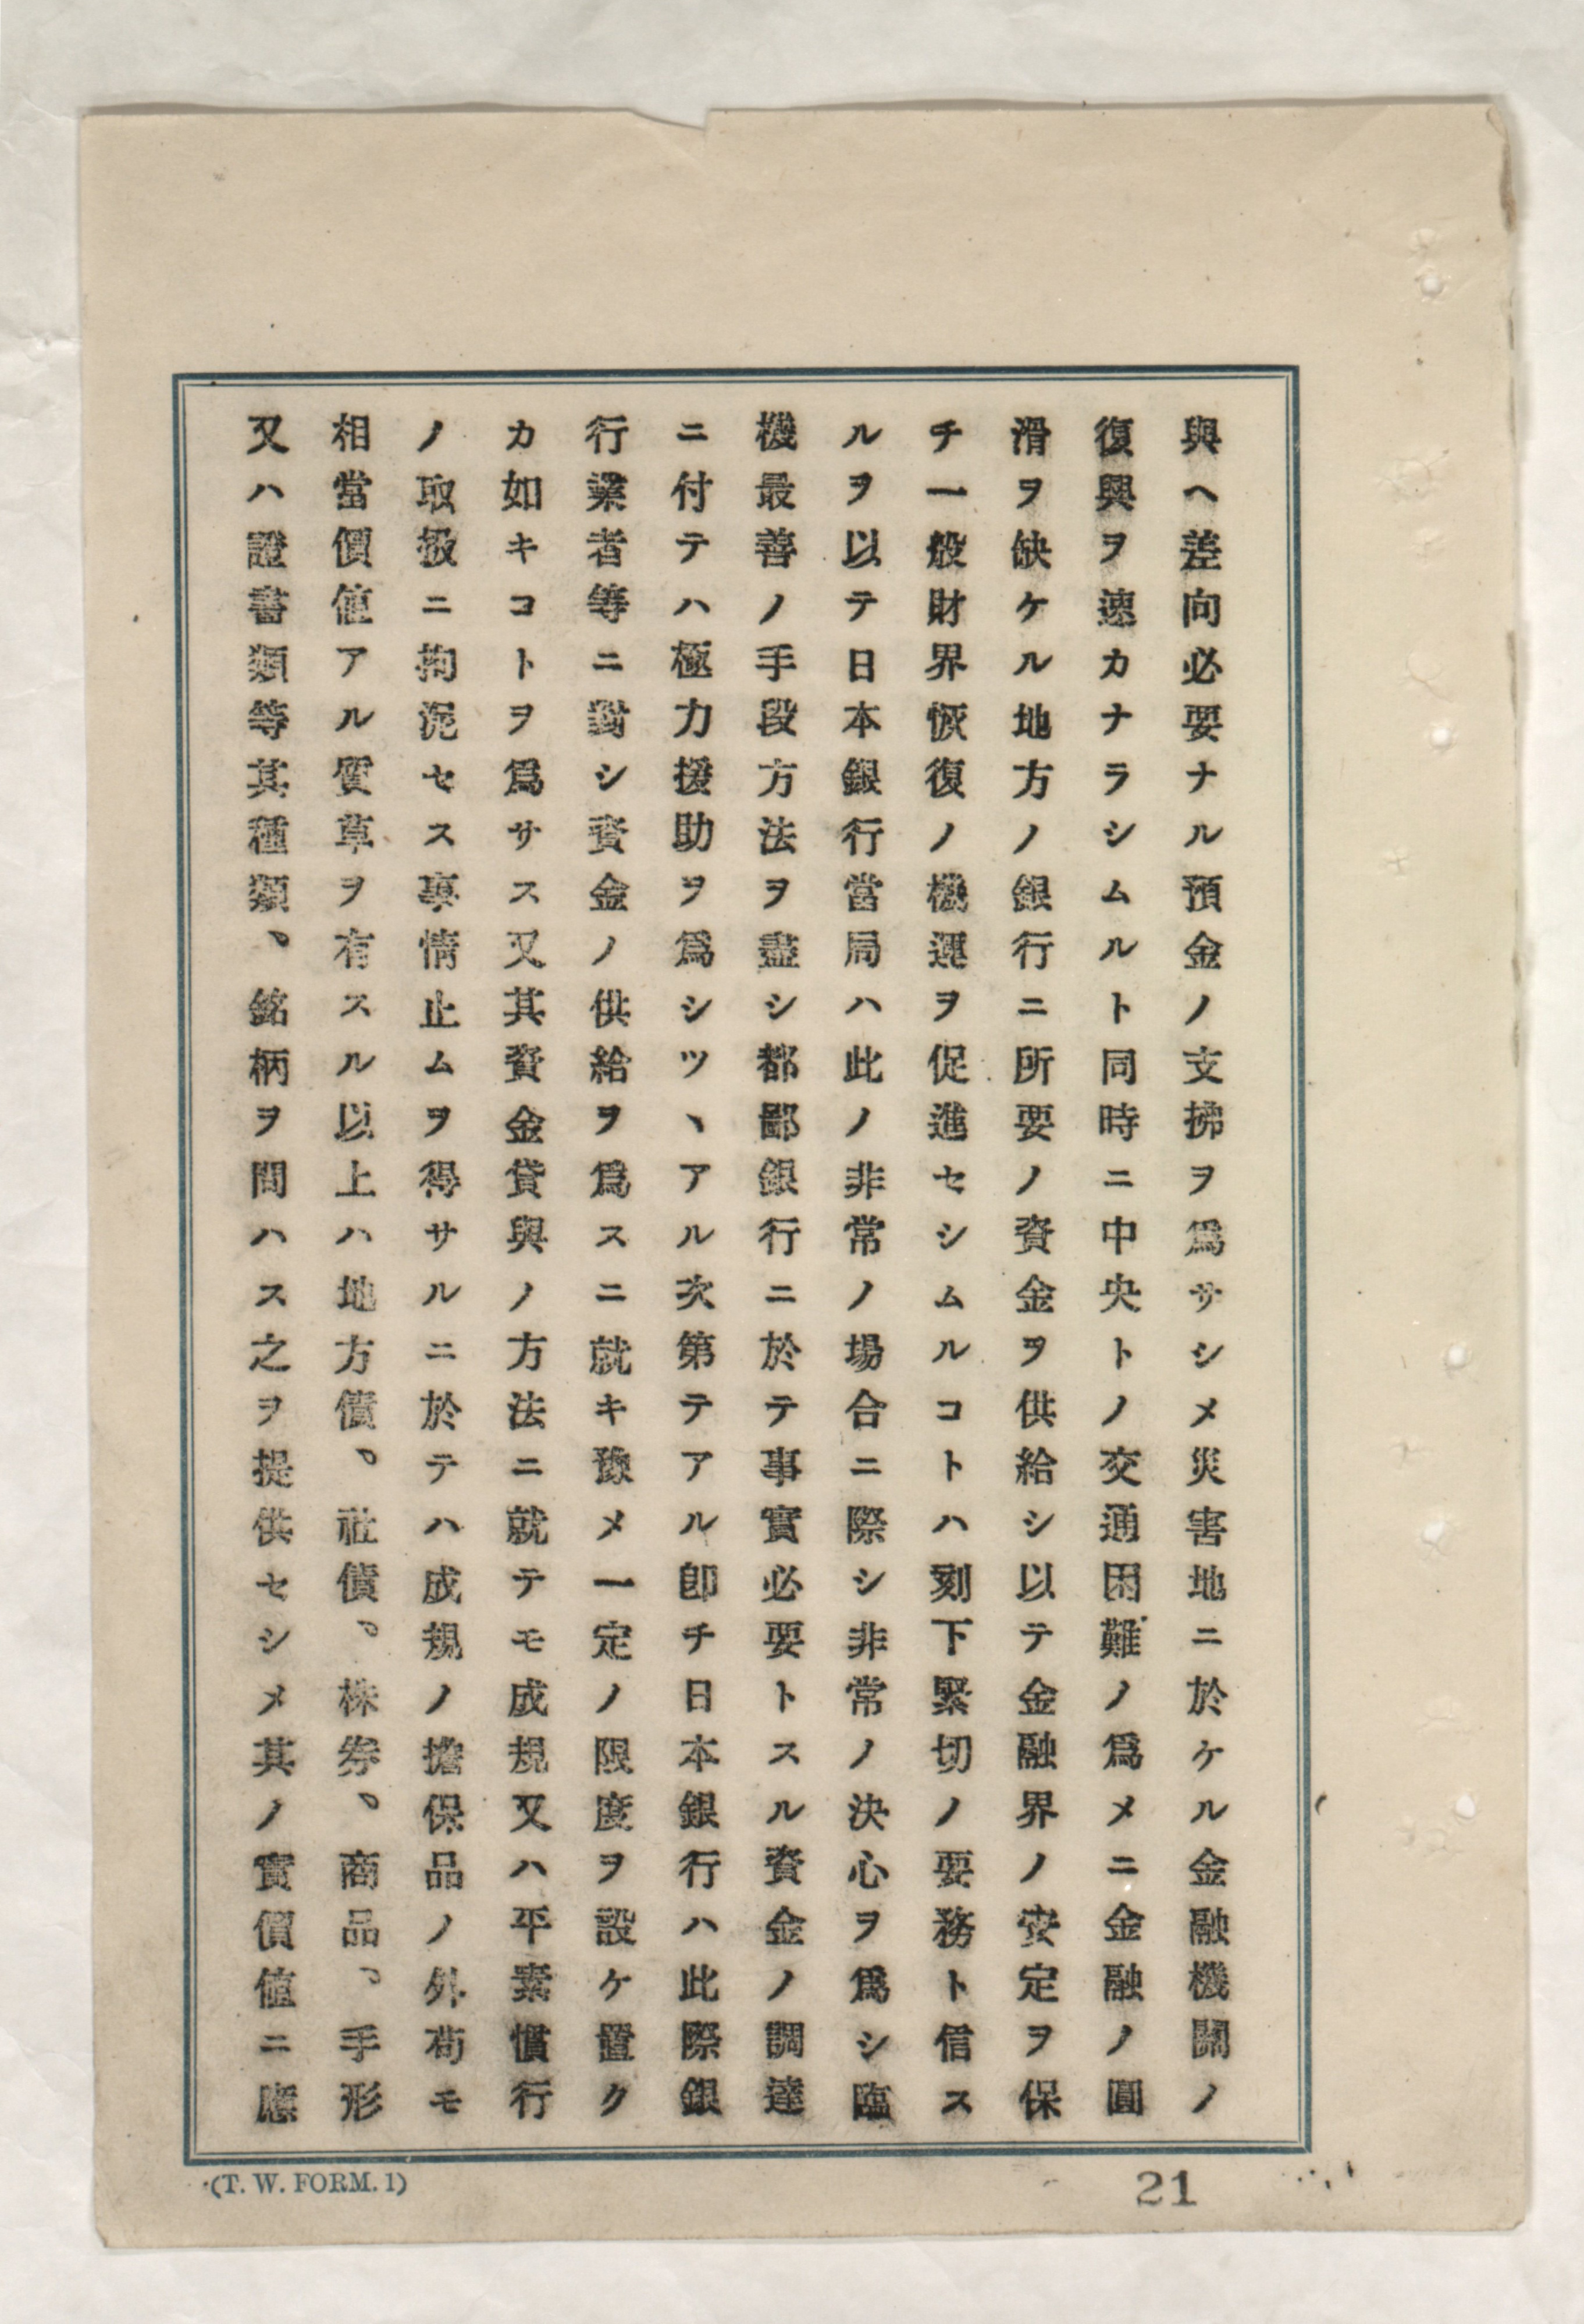 與ヘ差向必要ナル預金ノ支拂ヲ爲サシメ災害地ニ於ケル金融機關ノ
復興ヲ速カナラシムルト同時ニ中央トノ交通困難ノ爲メニ金融ノ圓
滑ヲ缺ケル地方ノ銀行ニ所要ノ資金ヲ供給シ以テ金融界ノ安定ヲ保
チ一般財界恢復ノ機運ヲ促進セシムルコトハ刻下緊切ノ要務ト信ス
ルヲ以テ日本銀行當局ハ此ノ非常ノ場合ニ際シ非常ノ決心ヲ爲シ臨
機最善ノ手段方法ヲ盡シ都鄙銀行ニ於テ事實必要トスル資金ノ調達
ニ付テハ極力援助ヲ爲シツヽアル次第テアル卽チ日本銀行ハ此際銀
行業者等ニ對シ資金ノ供給ヲ爲スニ就キ豫メ一定ノ限度ヲ設ケ置ク
カ如キコトヲ爲サス又其資金貸與ノ方法ニ就テモ成規又ハ平素慣行
ノ取扱ニ拘泥セス事情止ムヲ得サルニ於テハ成規ノ擔保品ノ外苟モ
相當價値アル質草ヲ有スル以上ハ地方債、社債、株券、商品、手形
又ハ證書類等其種類、銘柄ヲ問ハス之ヲ提供セシメ其ノ實價値ニ應
(T. W. FORM. 1)
21